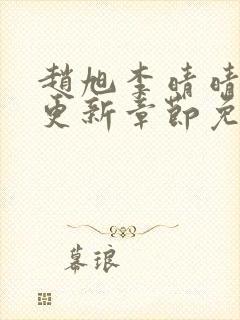 趙旭李晴晴
更新章節免
幕琅